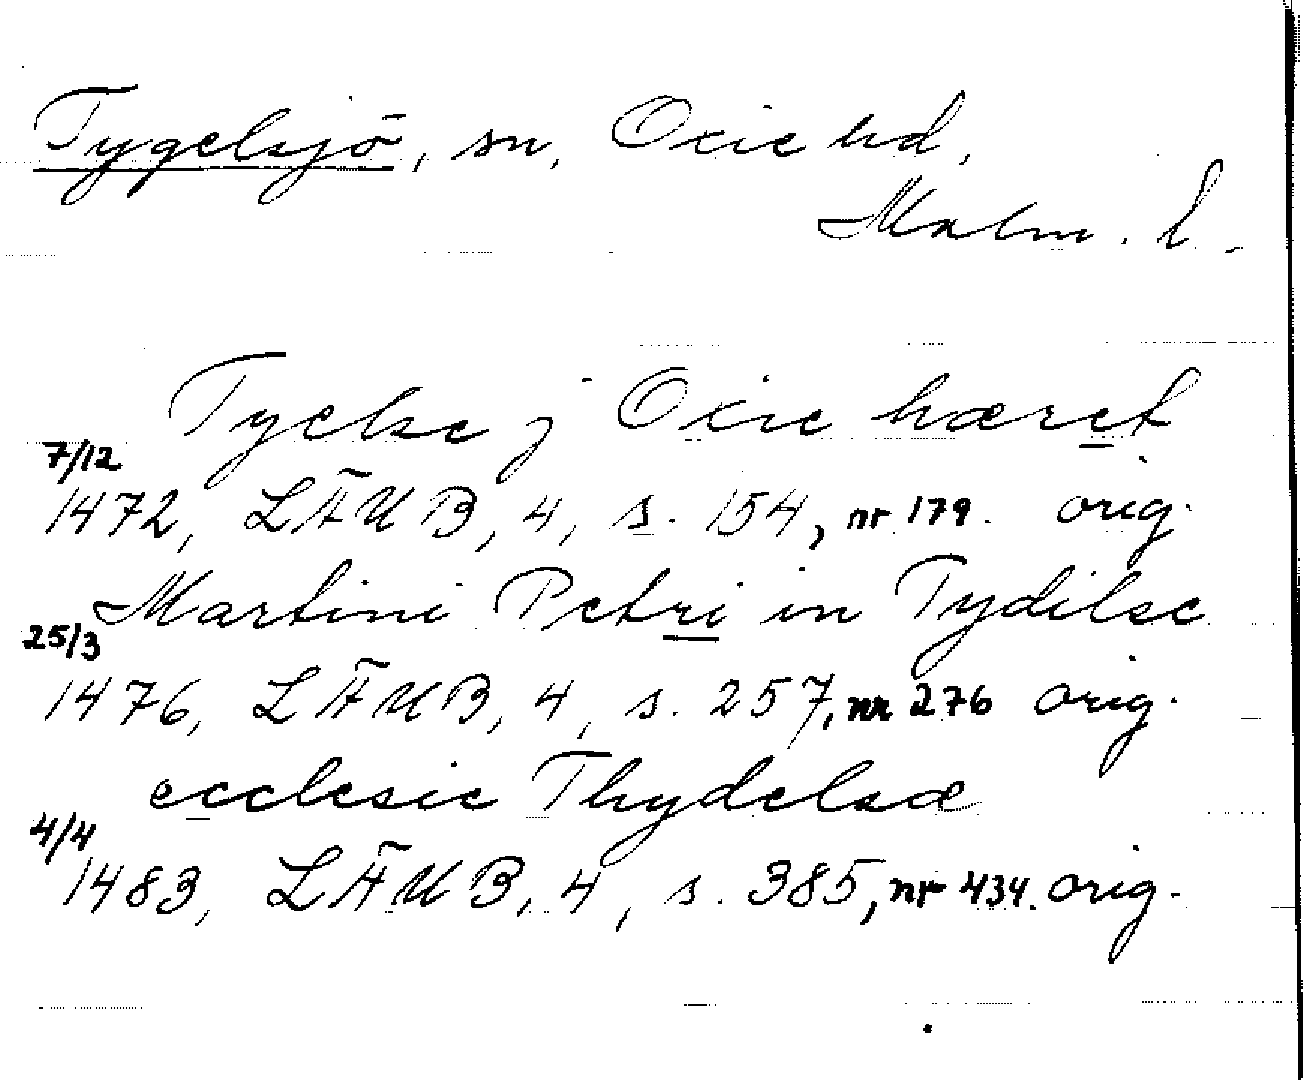 Tygelsjö, sn, Oxie hd,
Malm. l.
Tyelse j Oxie hæret
7/12
1472, LÄUB, 4, s. 154, nr 179. orig.
Martini Petri in Tydilse
25/3
1476, LÄUB, 4, s. 257, nr 276 orig.
ecclesie Thydelsæ
4/4
1483, LÄUB, 4, s. 385, nr 434. orig.